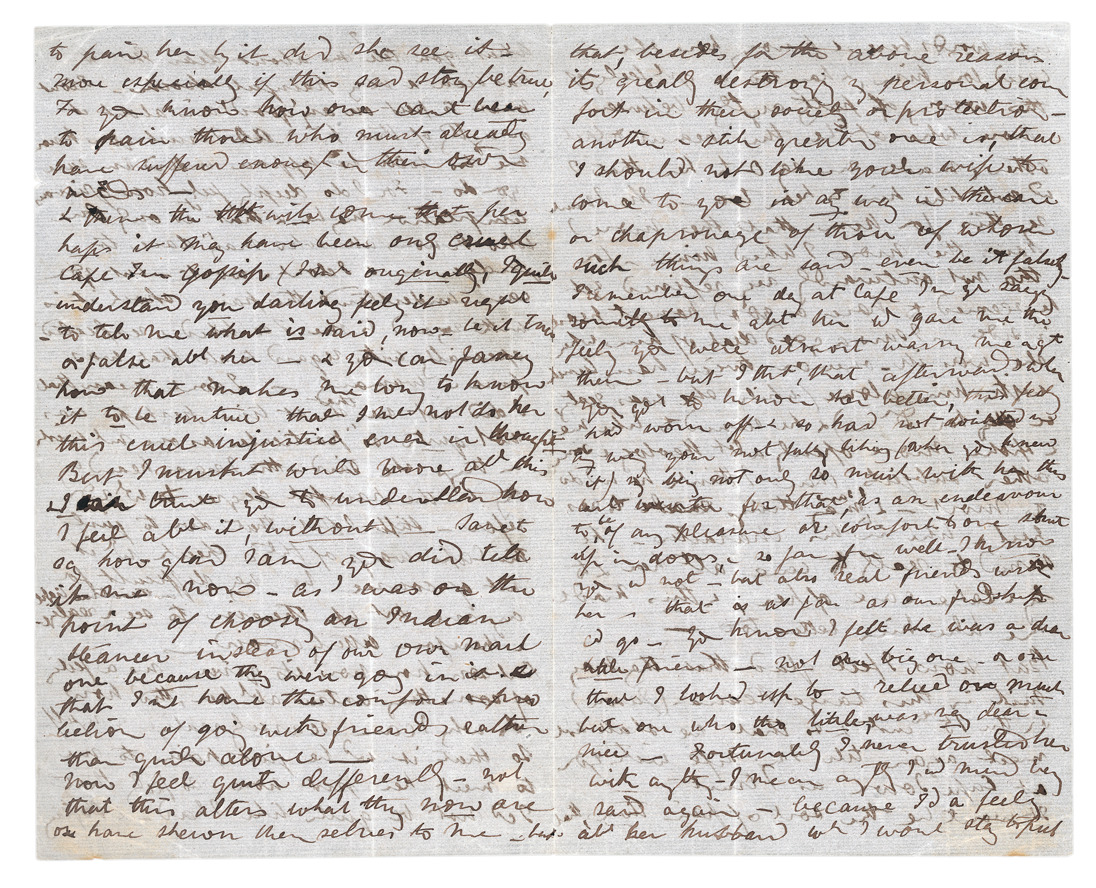 to pain her by it did she see it -
more especially if this sad story be true,
For yo know how one can't bear
to pain those who must already
have suffered enough in their own
minds -
& then - the that perhaps
haps it may have been only cruel
Cape Tn gossip originally, I quite
understand you darling feelg it right
to tell me what is said, now - be it true
or false abt her - & yo can fancy
how that makes me long to know
it to be untrue that I need not do her
this cruel injustice even in thought
But I mustnt write more abt this
& I want yo to understand how
I feel abt it, without -
say how glad I am yo did tell
it me now - as I was on the
point of choosg an Indian
steamer instead of our own mail
one because they were gog in it &
that I sd have the comfort & protection
tection of gog with friends rather
than quite alone -
now I feel quite differently - not
that this alters what they now are
or have shewn themselves to me - but
that, besides for the above reasons
its greatly destroying my personal com
fort in their society & protection -
another - still greater one is, that
I should not like your wife to
come to you in any way in the care
or chapronage of those of whom
such things are said - even be it falsely
I remember one day at Cape Tn yr sayg
somethg to me abt her wh gave me the
feelg yo were almost warng me agt
them - but I tht, that - afterwards when
yo got to know her better, that feelg
had worn off - & so had not
yr not fully liking (when yo knew
it) my being not only so much with her this
for that, as an endeavour
to, be of any pleasure or comfort to one shut
up in doors, & so far fr well - I know
yo wd not - but also real friends with
her - that is as far as our friendship
cd go - Yo know I felt she was a dear
little friend - not a big one - or one
that I looked up to - relied on much
but one who tho little, was vy dear &
nice - Fortunately I never trusted her
with anythg - I mean anythg I wd mind beg
said again - because I'd a feelg
abt her husband wh I wont stay to put